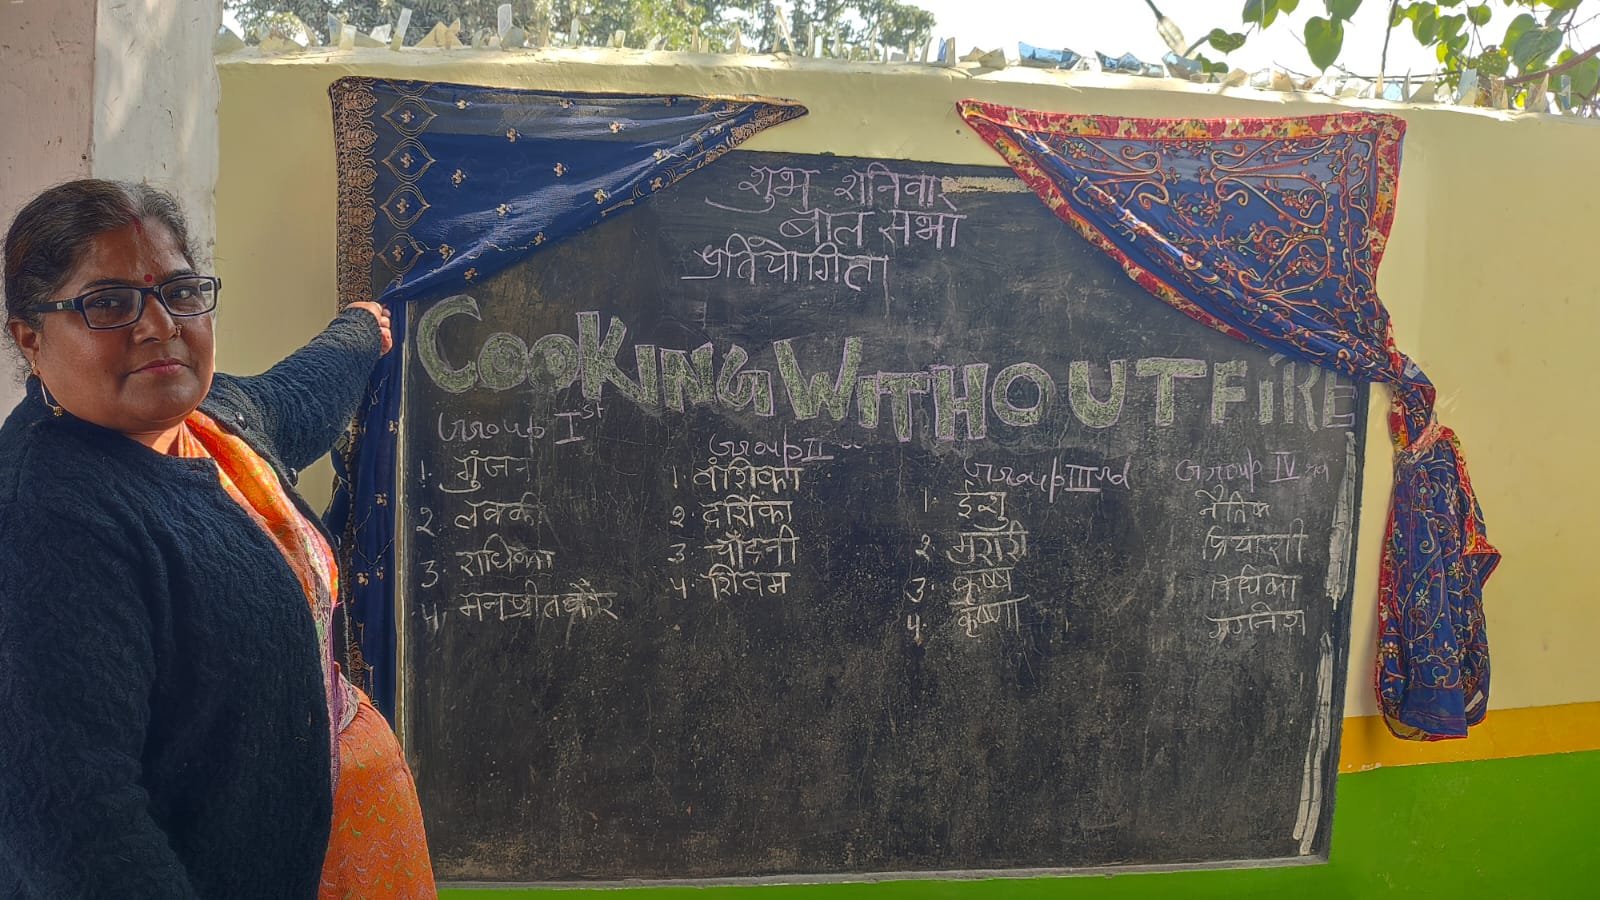 शुभ शनिवार
बाल सभा
प्रतियोगिता
COOKING WITHOUT FIRE
Group Ist
1. गुंजन
2. लक्की
3. राधिका
4. मनप्रीत कौर
Group II
1. वंशिका
2. दर्शिका
3 चाँदनी
४ शिवम
Group III rd
1. ईशु
2 मुरारी
3. कृष्ण
4. कृष्णा
Group IV
नैतिक
प्रियांशी